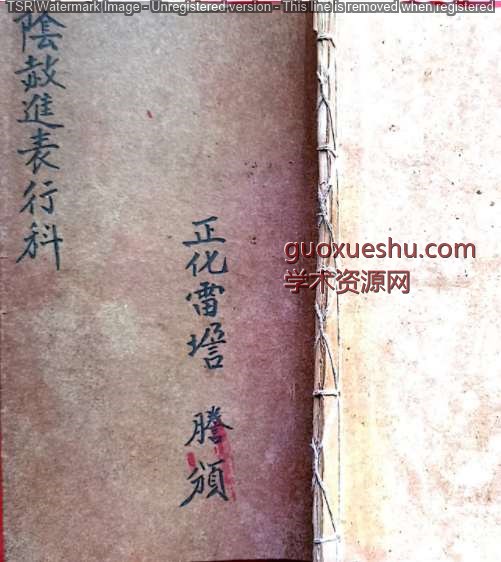 TSR Watermark Image - Unregistered version - This line is removed when registered
陰敼進表行科
正化雷壇 謄頒
guoxueshu.com
学术资源网